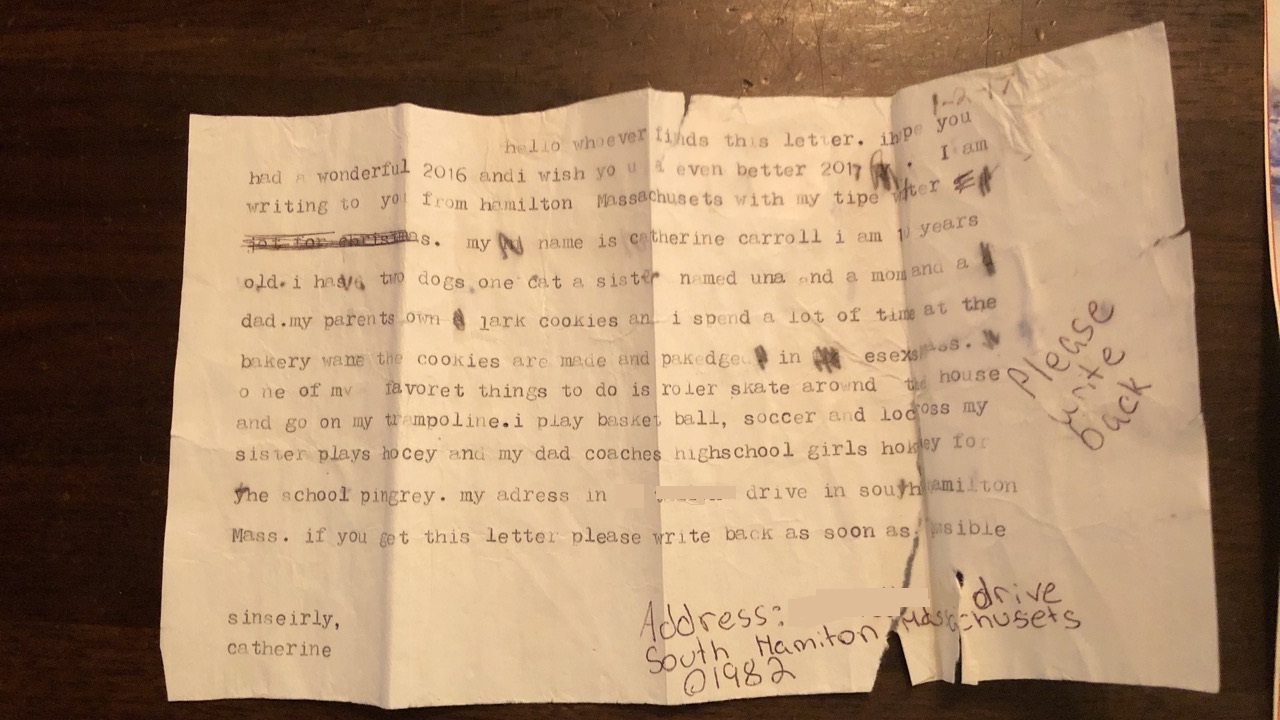 1-2-17
hello whoever finds this letter. ihpe you
had a wonderful 2016 andi wish you a even better 2017 . I am
writing to you from hamilton Massachusets with my tipe
jot for christmas. my name is catherine carroll i am years
old.i have two dogs one cat a sister named una and a mom and a
dad.my parents own lark cookies an i spend a lot of time at the
bakery wane the cookies are made and pakedge in esexs mass.
one of my favoret things to do is roler skate around the house
and go on my trampoline.i play basket ball, soccer and locross my
sister plays hocey and my dad coaches highschool girls hokey for
the school pingrey. my adress in drive in south hamilton
Mass. if you get this letter please write back as soon as possible
sinseirly,
catherine
Address: drive
South Hamiton Massachusets
01982
Please
write
back